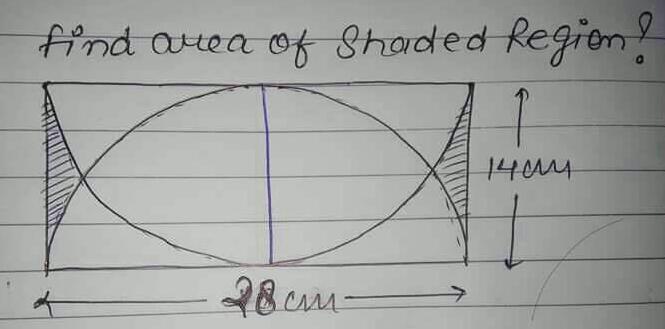 find area of Shaded Region?
14cm
28cm